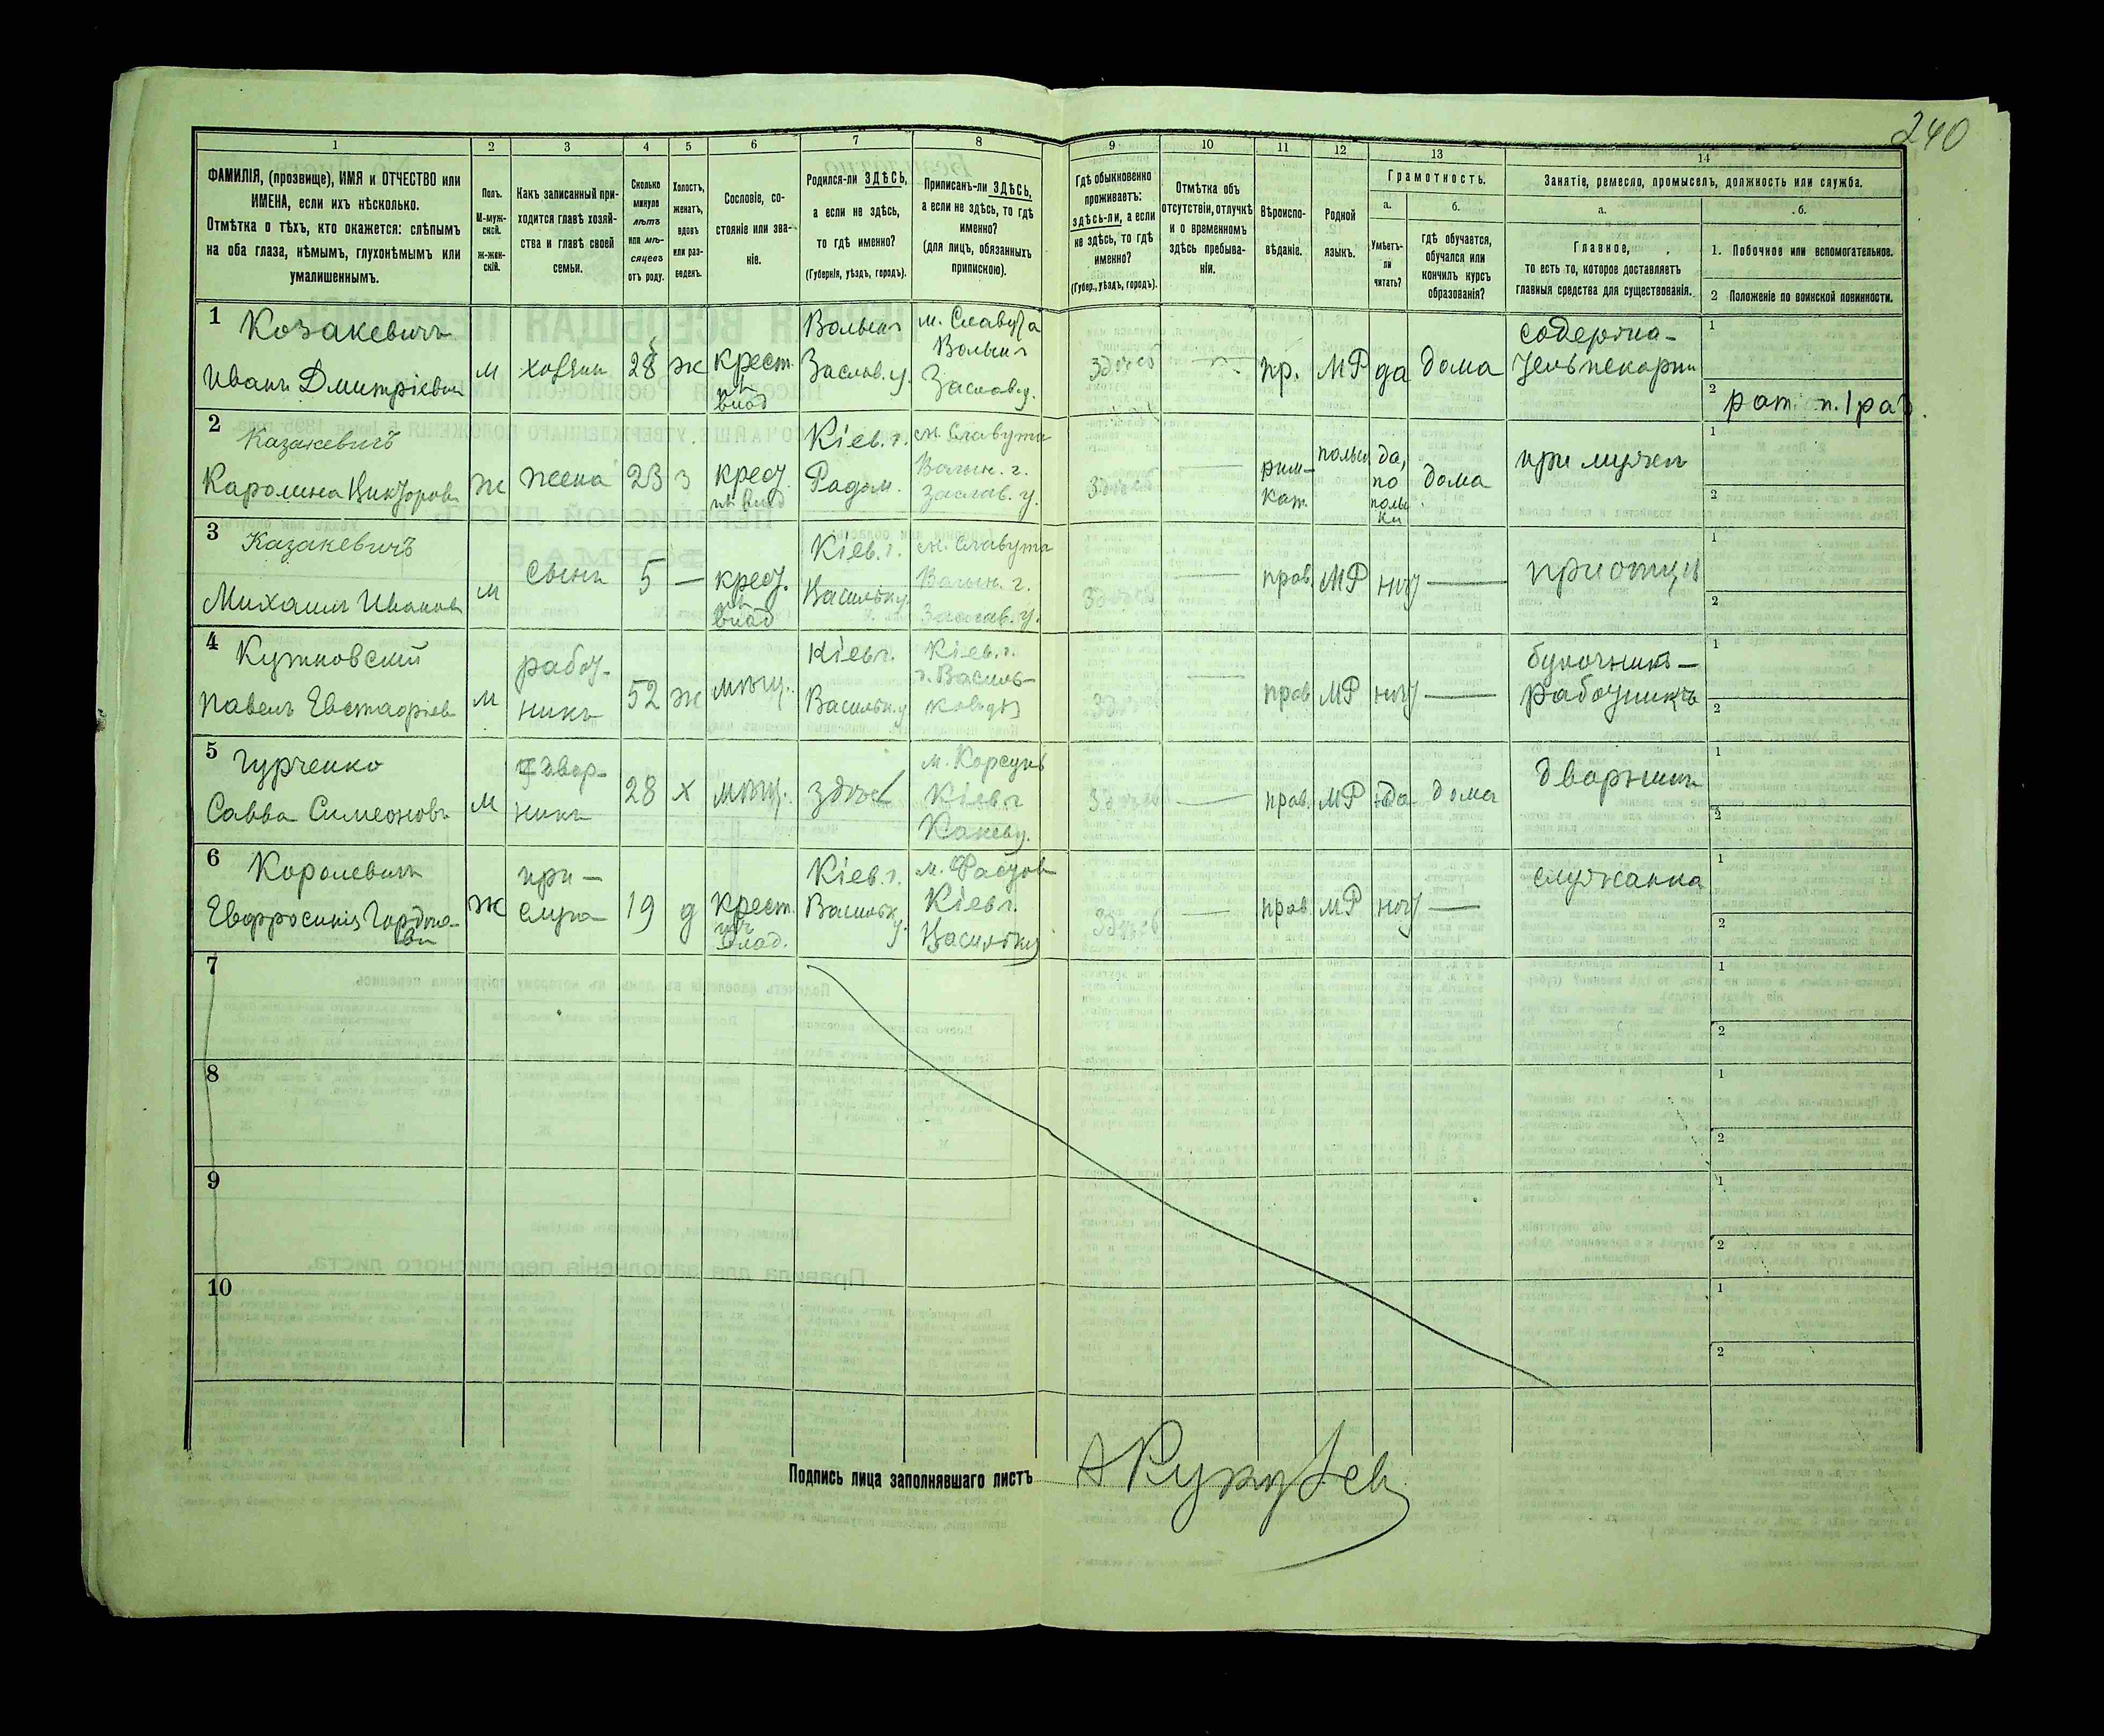 240
1
2
3
4
5
6
7
8
9
10
11
12
13
14
ФАМИЛІЯ, (прозвище), ИМЯ и ОТЧЕСТВО или
ИМЕНА, если ихъ нѣсколько.
Отмѣтка о тѣхъ, кто окажется: слѣпымъ
на оба глаза, нѣмымъ, глухонѣмымъ или
умалишеннымъ.
Полъ.
М-муж-
ской.
ж-жен-
скій.
Какъ записанный при-
ходится главѣ хозяй-
ства и главѣ своей
семьи.
Сколько
минуло
лѣтъ
или мѣ-
сяцевъ
отъ роду.
Холостъ,
женатъ,
вдовъ
или раз-
веденъ.
Сословіе, со-
стояніе или зва-
ніе.
Родился-ли ЗДѢСЬ,
а если не здѣсь,
то гдѣ именно?
(Губернія, уѣздъ, городъ).
Приписанъ-ли ЗДѢСЬ,
а если не здѣсь, то гдѣ
именно?
(для лицъ, обязанныхъ
припискою).
Гдѣ обыкновенно
проживаетъ:
здѣсь-ли, а если
не здѣсь, то гдѣ
именно?
(Губер., уѣздъ, городъ).
Отмѣтка объ
отсутствіи, отлучкѣ
и о временномъ
здѣсь пребыва-
ніи.
Вѣроиспо-
вѣданіе.
Родной
языкъ.
Грамотность.
а.
Умѣетъ-
ли
читать?
б.
гдѣ обучается,
обучался или
кончилъ курсъ
образованія?
Занятіе, ремесло, промыселъ, должность или служба.
а.
Главное,
то есть то, которое доставляетъ
главныя средства для существованія.
б.
1. Побочное или вспомогательное.
2 Положеніе по воинской повинности.
1 Козакевичъ
Иванъ Дмитріевъ
м
хозяин
28
ж
крест.
Волын г
Заслав. у.
м. Славута
Волын г
Заслав у.
здесь
пр.
МР
да
дома
содержа-
тель пекарни
1
2
2
Казакевичъ
Каролина Викторова
ж
жена
23
з
крест.
Кіев. г.
Радом.
м. Славута
Волын. г.
Заслав. у.
здесь
рим-
кат.
польс
да,
по
поль
ки
дома
при мужѣ
1
2
3
Казакевичъ
Михаилъ Иванов
м
сынъ
5
—
крест.
Кіев. г.
Васильк у.
м. Славута
Волын. г.
Заслав. у.
здесь
прав.
МР
нет
—
при отцѣ
1
2
4
Павелъ Евстафіев
м
работ-
никъ
52
ж
мѣщ.
Кіев г.
Васильк. у
Кіев. г.
г. Василь-
ковѣ
здесь
прав
МР
нет
—
булочникъ —
работникъ
1
2
5 Гурченко
Савва Симеоновъ
м
двор-
никъ
28
х
мѣщ.
здѣсь
м. Корсунь
Кіев г
Канев у.
здесь
—
прав.
МР
да
дома
дворникъ
1
2
6
Королевичъ
Евфросинія Гордѣе-
ва
ж
при-
слуга
19
д
крест.
Кіев. г.
Васильк.
у.
м. Фастов
Кіев г.
Васильк у
здесь
—
прав
МР
нет
—
служанка
1
2
7
1
2
8
1
2
9
1
2
10
1
2
Подпись лица заполнявшаго листъ